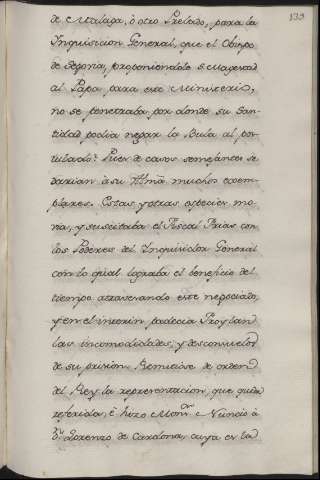 133
de Malaga, ò otro Prelado, para la
Inquisicion General, que el Obispo
de Segovia, proponiendole S. Magestad
al Papa para este Ministerio,
no se penetraba por donde su San-
tidad podia negar la Bula al pos-
tulado: Pues de casos semejantes se
darian à su Illma. muchos exem-
plares. Estas y otras especies mo-
via, y suscitaba el Fiscal Frias con
los Poderes del Inquisidor General
con lo qual lograba el beneficio del
tiempo atrasando este negociado,
y en el interin padecia Froylan
las incomodidades, y desconsuelos
de su prision. Remitiose de orden
del Rey la representacion, que queda
referida, è hizo Monr. Nuncio à
Dn. Lorenzo de Cardona, cuya es la